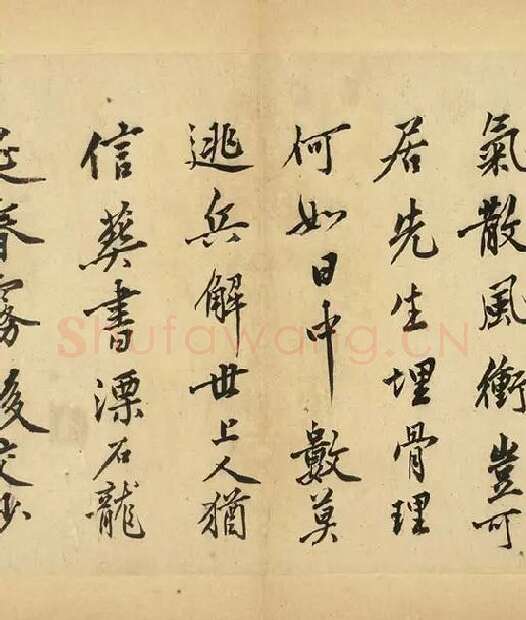 氣散風衝豈可
居先生埋骨理
何如日中數莫
逃兵解世上人猶
信葬書漂石龍
涎春霧後交沙
Shufawang.CN